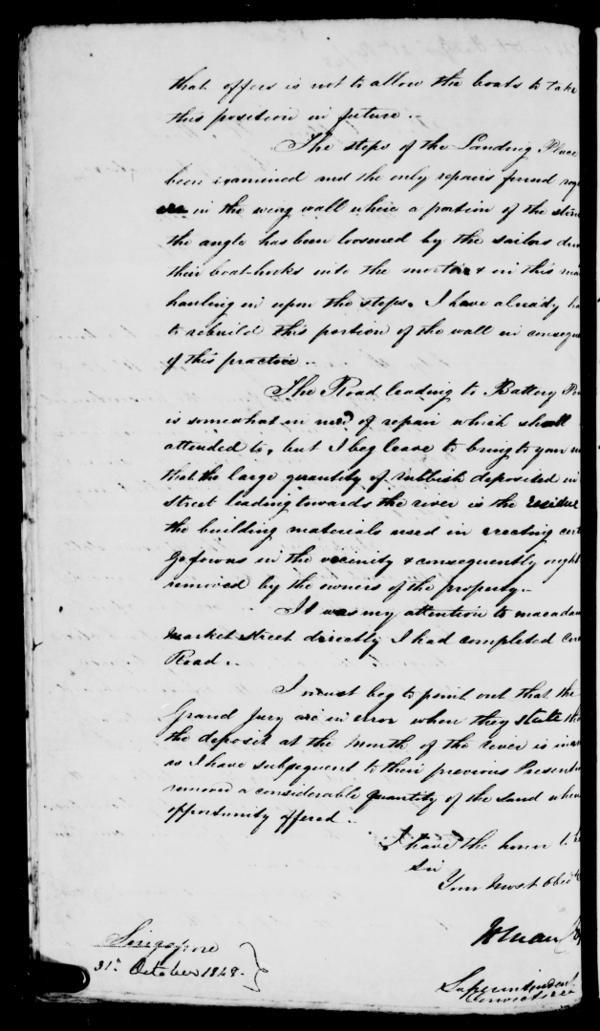 that offers is not to allow the boats to take
this position in future.
The steps of the Landing Place
been examined and the only repairs found
in the wing wall where a portion of the
the angle has been loosened by the sailors
their boat-hooks into the mortar & in this
hauling in upon the steps. I have already
to rebuild this portion of the wall in conseq
of this practice.
The Road leading to Battery
is somewhat in need of repair which shall
attended to, but I beg leave to bring to your
that the large quantity of rubbish deposited in
street leading towards the river is the residue
the building materials used in erecting cert
Godowns in the vicinity & consequently ought
removed by the owners of the property.
It was my attention to macadam
Market Street directly I had completed
Road.
I must beg to point out that the
Grand Jury are in error when they state
the deposit at the Mouth of the river is
as I have subsequent to their previous Present
removed a considerable quantity of the sand
opportunity offered.
I have the honor
Sir
Your Most Obed
Singapore
31st October 1848.
Superintendent
Convicts